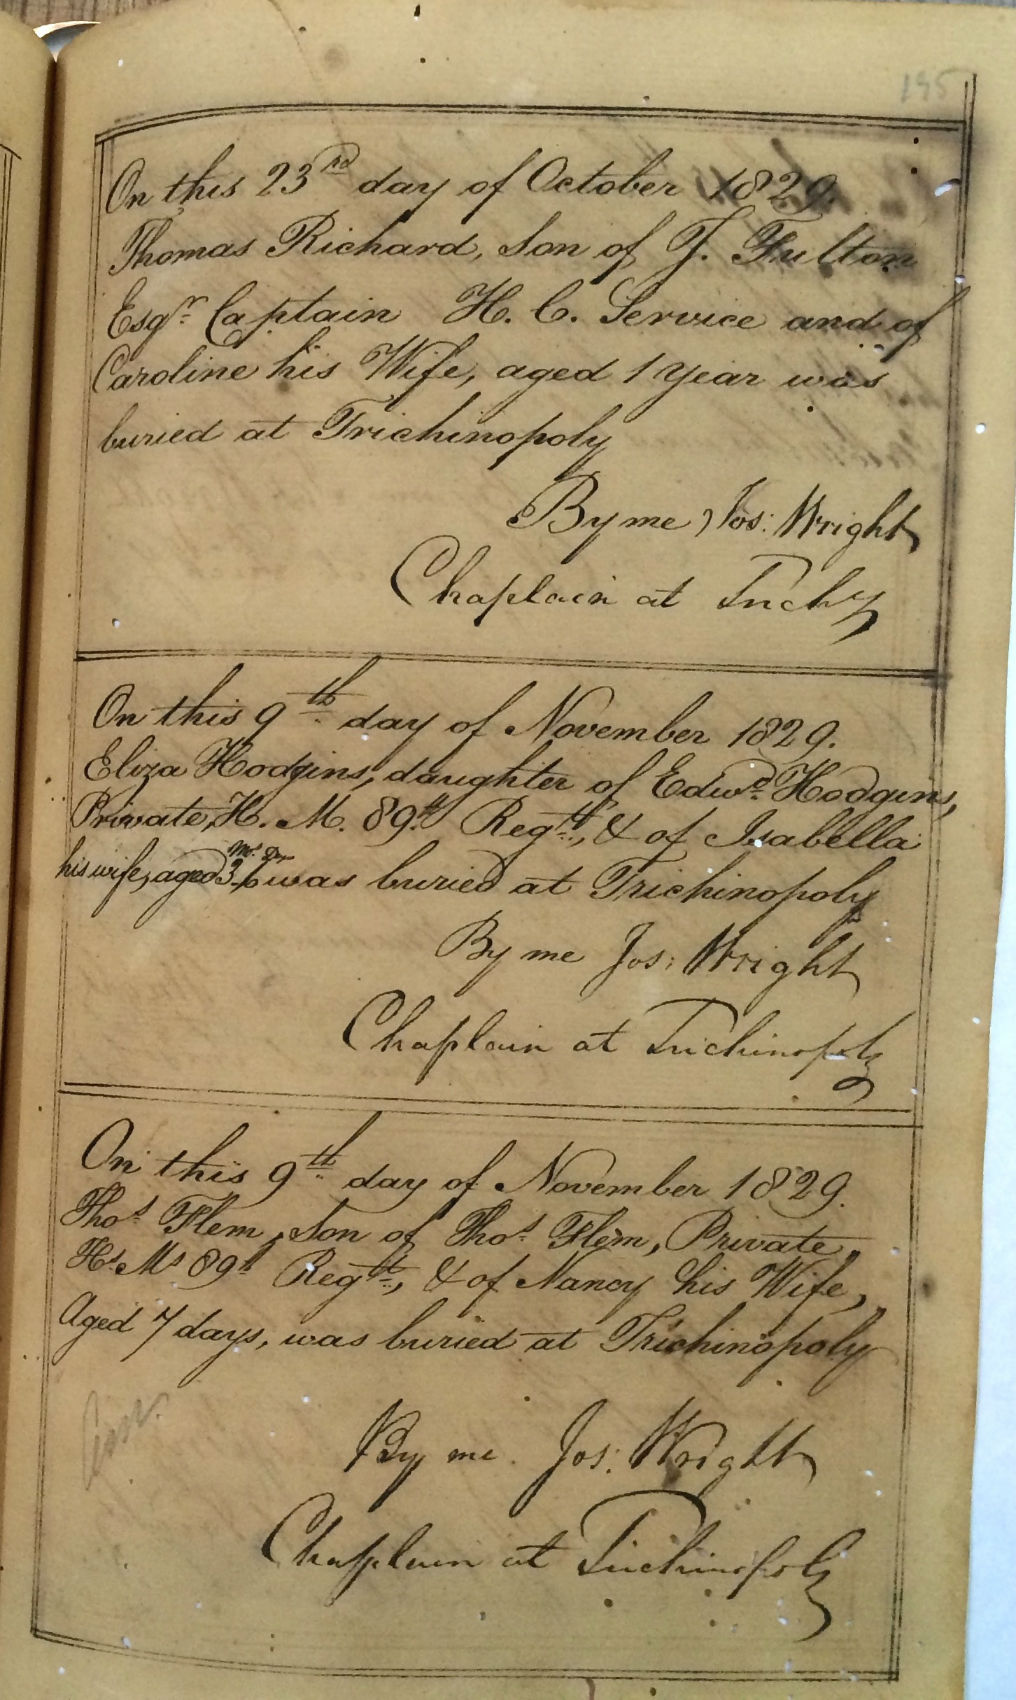 195
On this 23rd day of October 1829.
Thomas Richard, Son of J. Fulton
Esqr. Captain H. C. Service and of
Caroline his Wife, aged 1 Year was
buried at Trichinopoly
By me, Jos: Wright
Chaplain at Trichy
On this 9th day of November 1829.
Eliza Hodgins, daughter of Edwd. Hodgins,
Private, H. M. 89th Regtt., & of Isabella
Ms. Ds.
his wife, aged 3. 6 was buried at Trichinopoly
By me Jos: Wright
Chaplain at Trichinopoly
On this 9th day of November 1829.
Thos. Flem, Son of Thos. Flem, Private,
Hs. Ms. 89th Regtt., & of Nancy his Wife,
Aged 7 days, was buried at Trichinopoly
By me. Jos: Wright
Chaplain at Trichinopoly